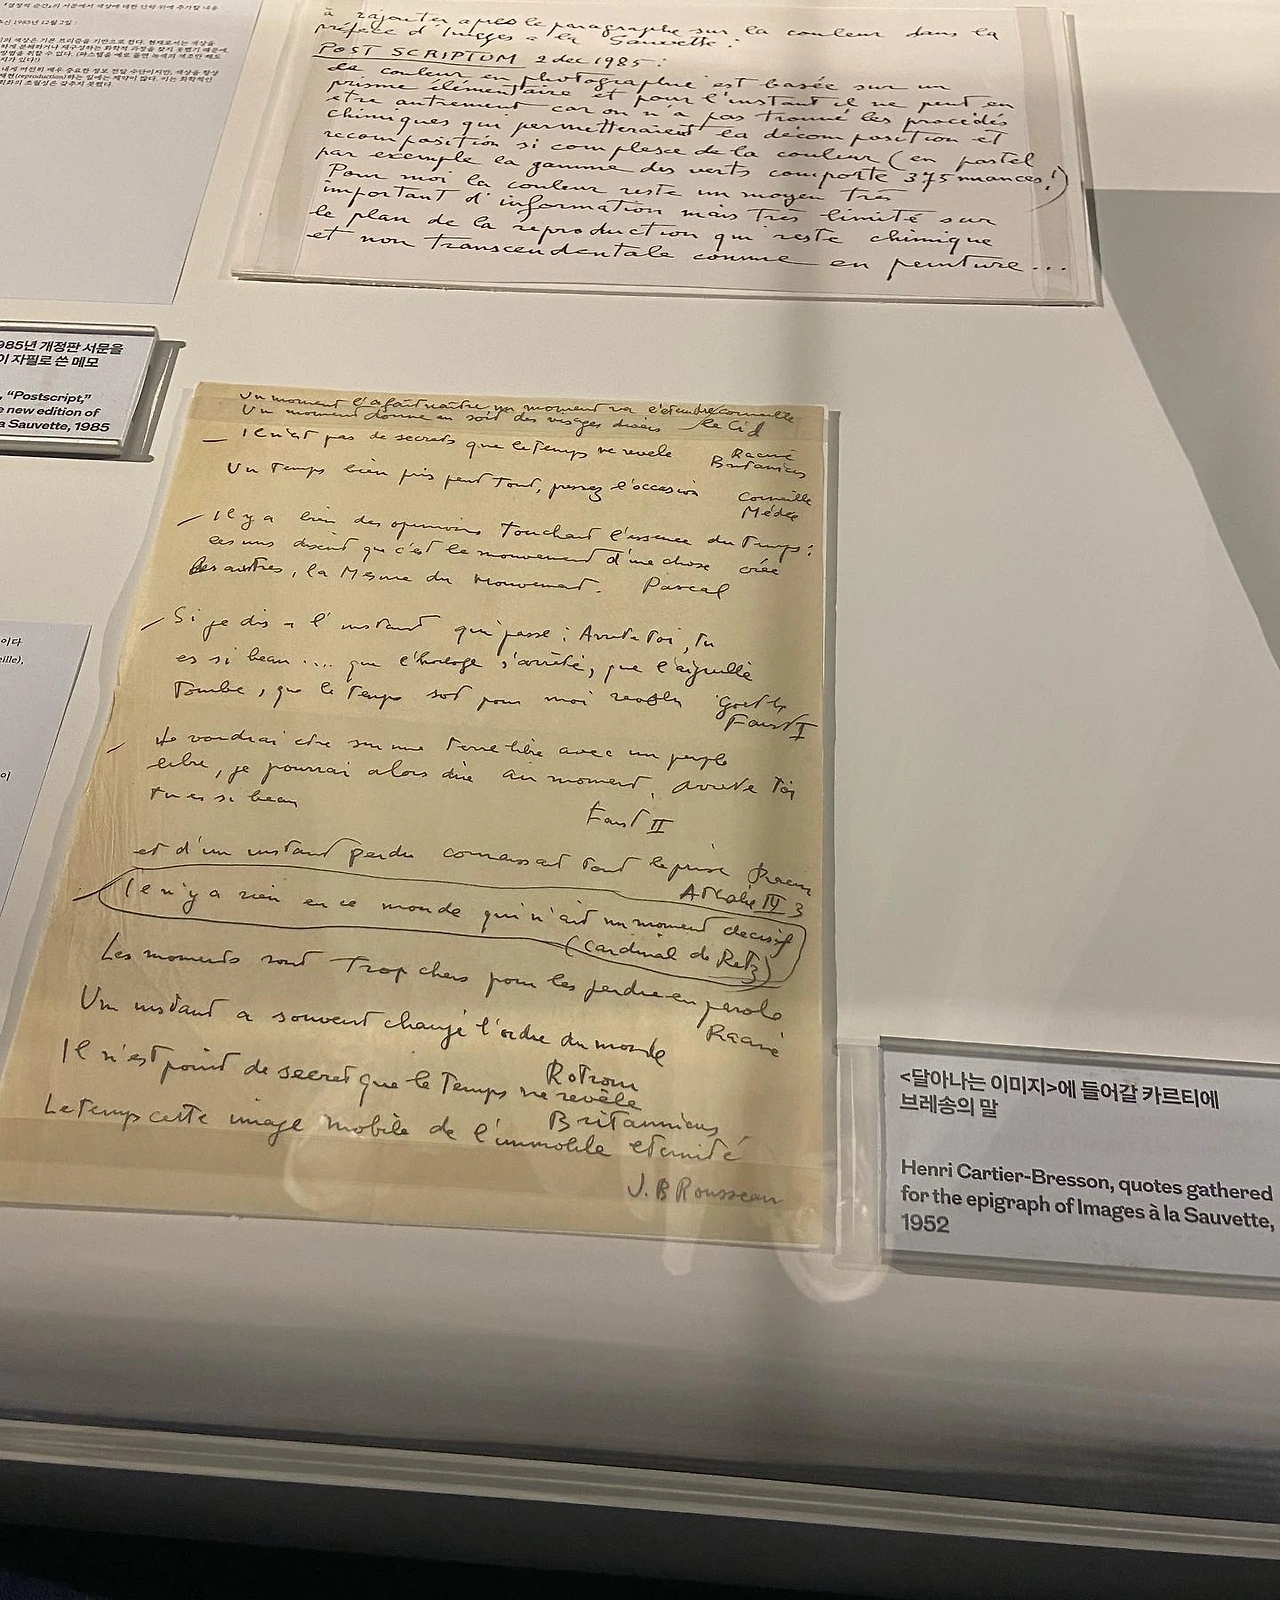 à rajouter après le paragraphe sur la couleur dans la
préface d'Images à la Sauvette:
POST SCRIPTUM 2 dec 1985:
La couleur en photographie est basée sur un
prisme élémentaire et pour l'instant il ne peut en
être autrement car on n'a pas trouvé les procédés
chimiques qui permetteraient la décomposition et
recomposition si complexe de la couleur (en pastel
par exemple la gamme des verts comporte 375 nuances!)
Pour moi la couleur reste un moyen très
important d'information mais très limité sur
le plan de la reproduction qui reste chimique
et non transcendentale comme en peinture...
985년 개정판 서문을
이 자필로 쓴 메모
, “Postscript,”
e new edition of
la Sauvette, 1985
Un moment l'a fait naître un moment va l'éteindre Corneille
Un moment donne en soit des visages divers Le Cid
— Il n'est pas de secrets que le temps ne revele Racine
Britanicus
Un temps bien pris peut tout, prenez l'occasion Corneille
Médée
— Il y a bien des opinions touchant l'essence du Temps:
les uns disent que c'est le mouvement d'une chose créée
Les autres, la Mesure du Mouvement. Pascal
— Si je dis a l'instant qui passe: Arrete toi, tu
es si beau .... que l'horloge s'arrête, que l'aiguille
tombe, que le temps soit pour moi Goethe
Faust I
— Je voudrai etre sur une terre libre avec un peuple
libre, je pourrai alors dire au moment, arrete toi
tu es si beau
Faust II
et d'un instant perdu connaissait tout le prix Racine
Athalie IV 3
— Il n'y a rien en ce monde qui n'ait un moment decisif
(Cardinal de Retz)
Les moments sont trop chers pour les perdre en parole
Racine
Un instant a souvent changé l'ordre du monde
Rotrou
Il n'est point de secret que le temps ne revèle
Britannicus
Le temps cette image mobile de l'immobile eternité
J.B Rousseau
<달아나는 이미지>에 들어갈 카르티에
브레송의 말
Henri Cartier-Bresson, quotes gathered
for the epigraph of Images à la Sauvette,
1952